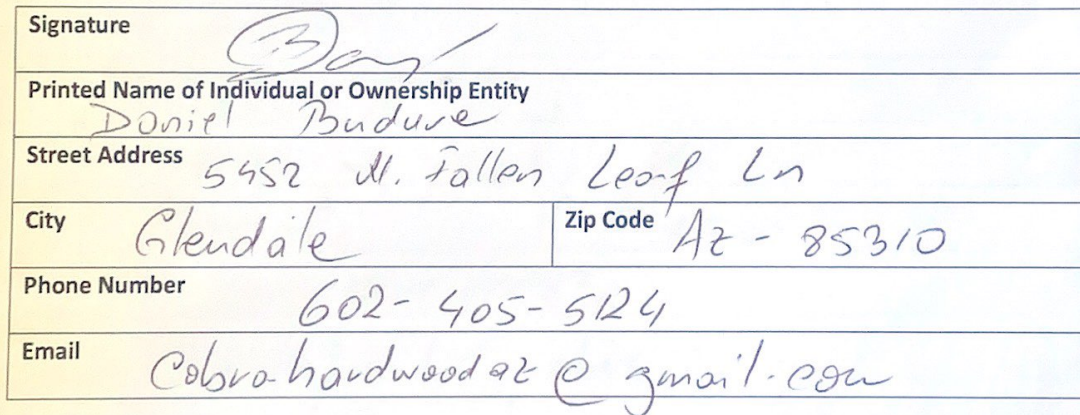 Signature
Printed Name of Individual or Ownership Entity
Daniel Budure
Street Address 5452 W. Fallen Leaf Ln
City Glendale
Zip Code Az - 85310
Phone Number 602-405-5124
Email Cobrahardwoodaz@gmail.com